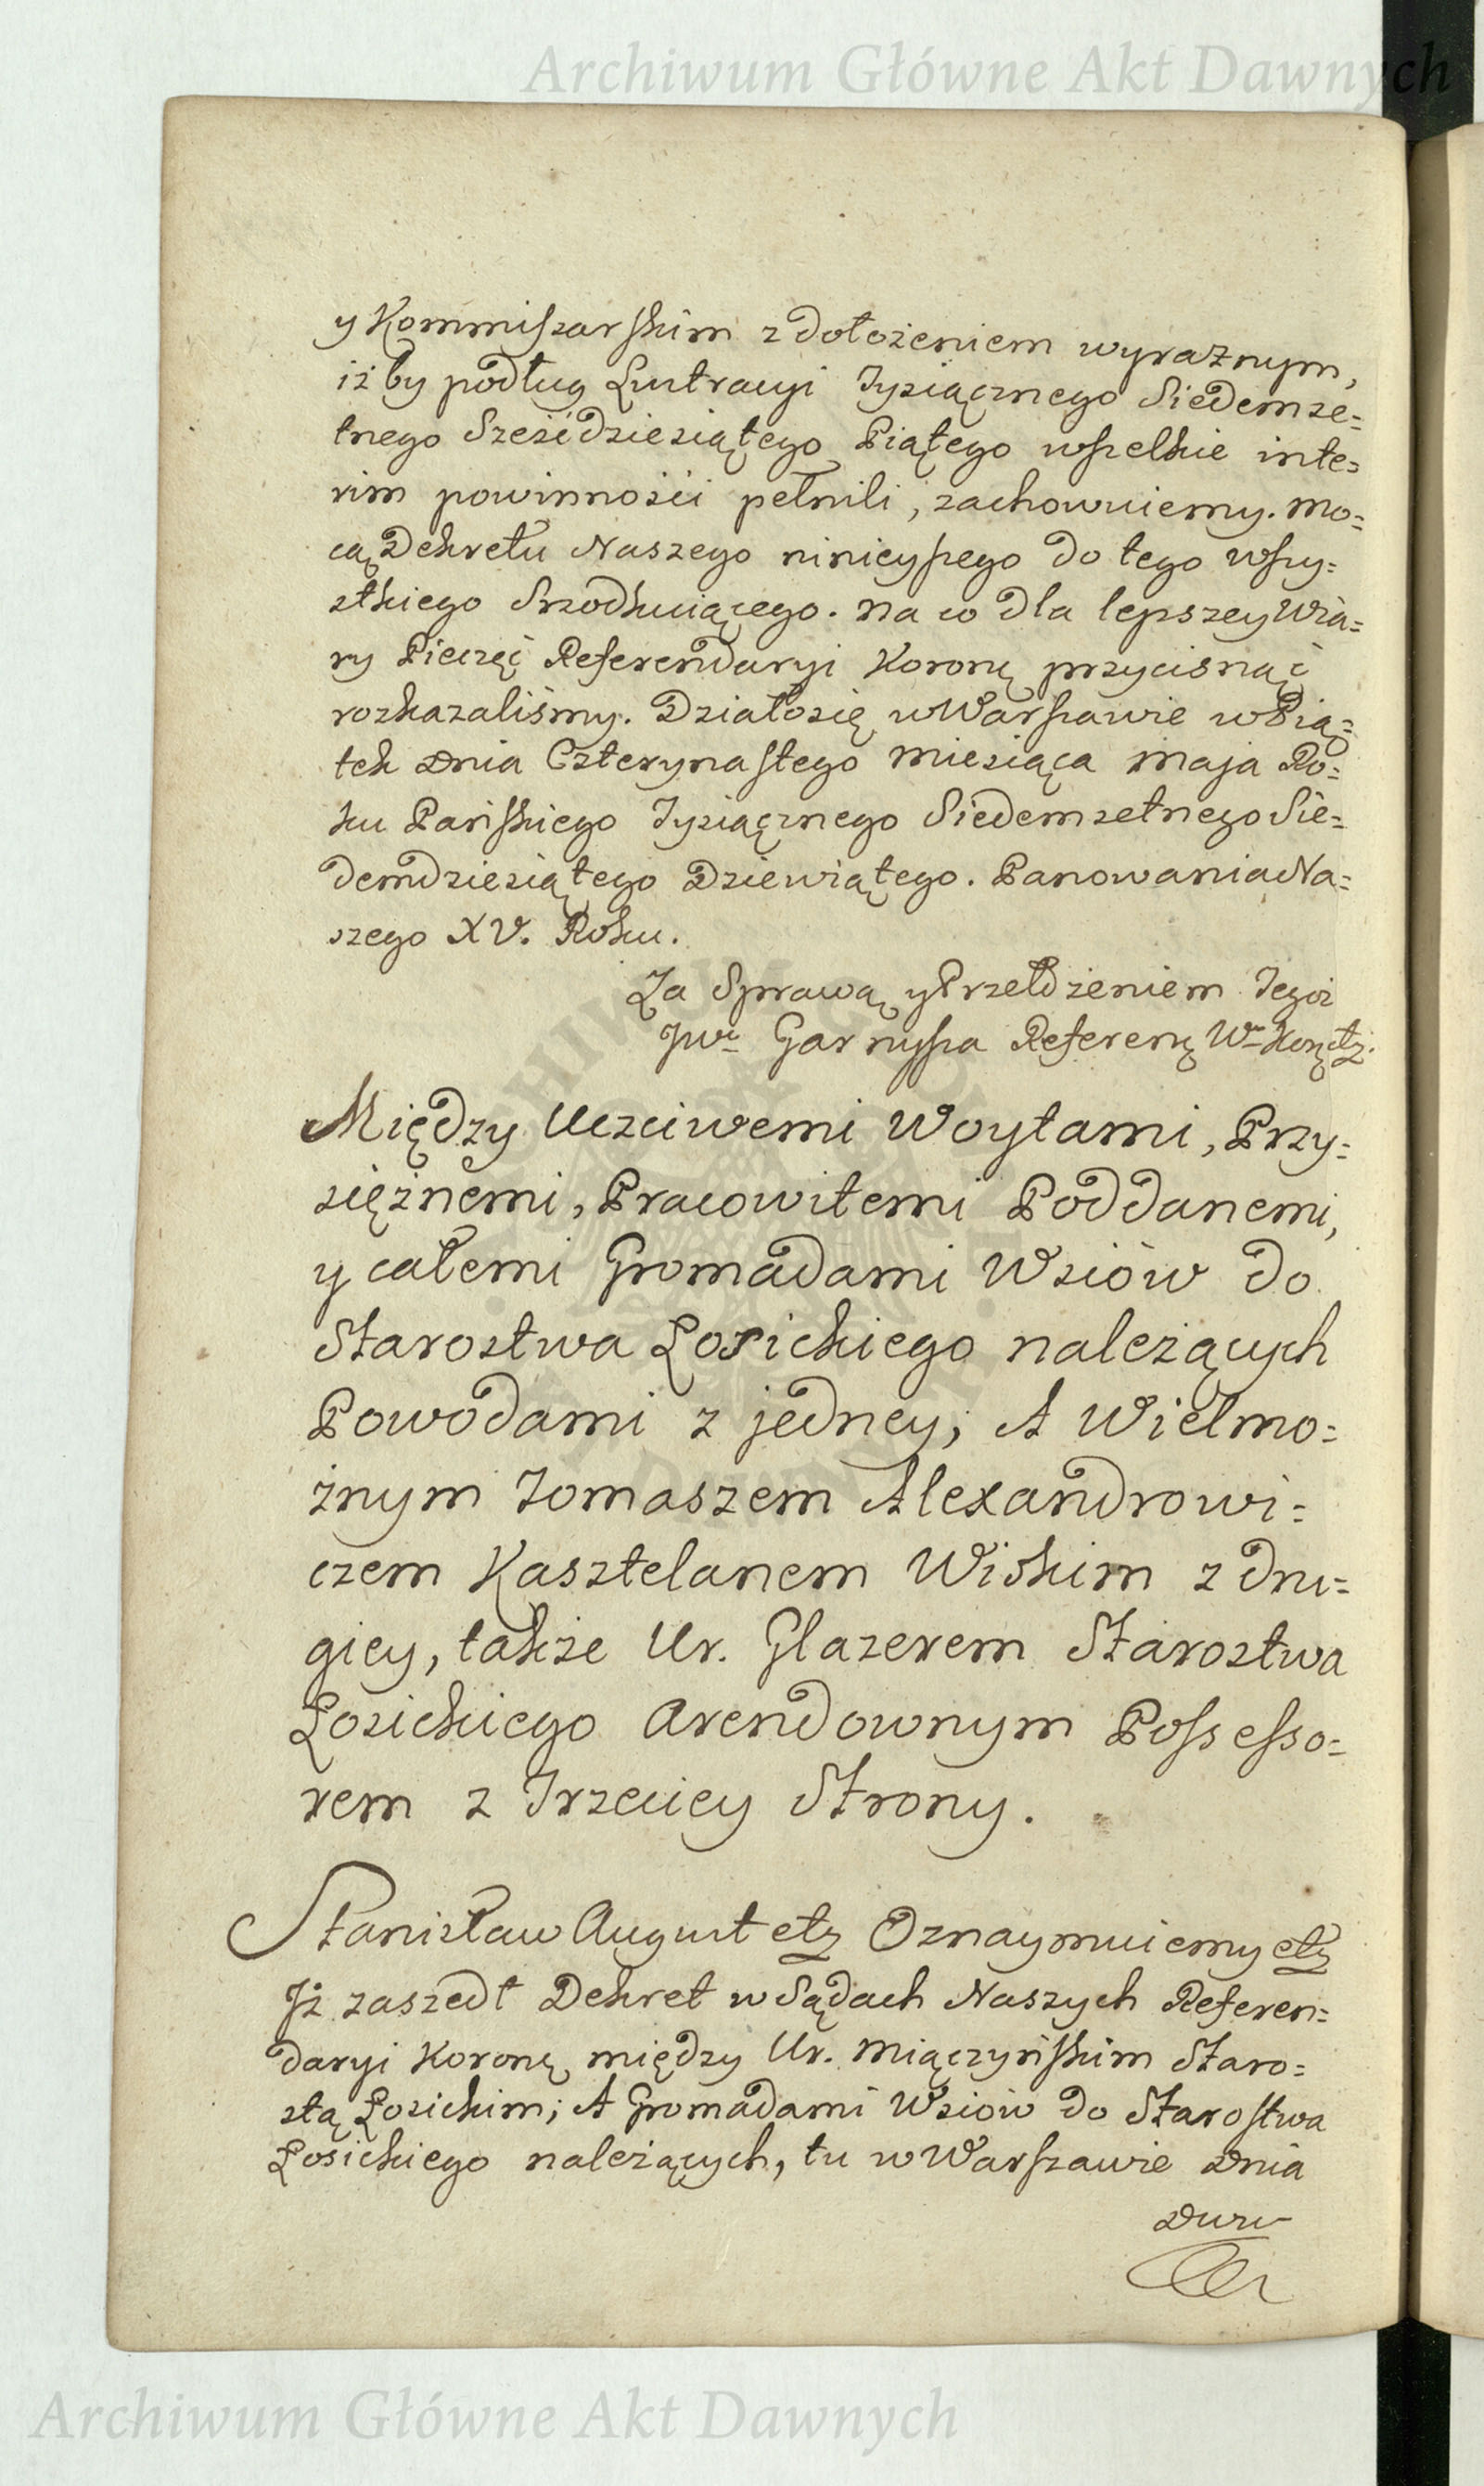 Archiwum Główne Akt Dawnych
y Kommiszarskim z dołożeniem wyraźnym,
iż by podług Lustracyi Tysiącznego Siedemse=
tnego Sześćdziesiątego Piątego wszelkie inte=
rim powinności pełnili, zachowuiemy. Mo=
cą Dekretu Naszego ninieyszego do tego wszy=
stkiego Srzodkuiącego. Na co dla lepszey Wia=
ry Pieczęć Referendaryi Koronę przycisnąć
rozkazaliśmy. Działo się w Warszawie w Pią=
tek Dnia Czterynastego Miesiąca Maja Ro=
ku Pańskiego Tysiącznego Siedemsetnego Sie=
demdziesiątego Dziewiątego. Panowania Na=
szego XV. Roku.
Za Sprawą y Przełożeniem Tegoż
Jwo Garnysza Referenę Wo Korę etz.
Między Uczciwemi Woytami, Przy=
siężnemi, Pracowitemi Poddanemi,
y całemi Gromadami Wsiów do
Starostwa Łosickiego należących
Powodami z jedney; A Wielmo=
żnym Tomaszem Alexandrowi=
czem Kasztelanem Wiskim z dru=
giey, także Ur. Glazerem Starostwa
Łosickiego Arendownym Possesso=
rem z Trzeciey Strony.
Stanisław August etz Oznaymuiemy etz
Iż zaszedł Dekret w Sądach Naszych Referen=
daryi Koronę między Ur. Miączyńskim Staro=
stą Łosickim; A Gromadami Wsiów do Starostwa
Łosickiego należących, tu w Warszawie Dnia
Dwu
Archiwum Główne Akt Dawnych